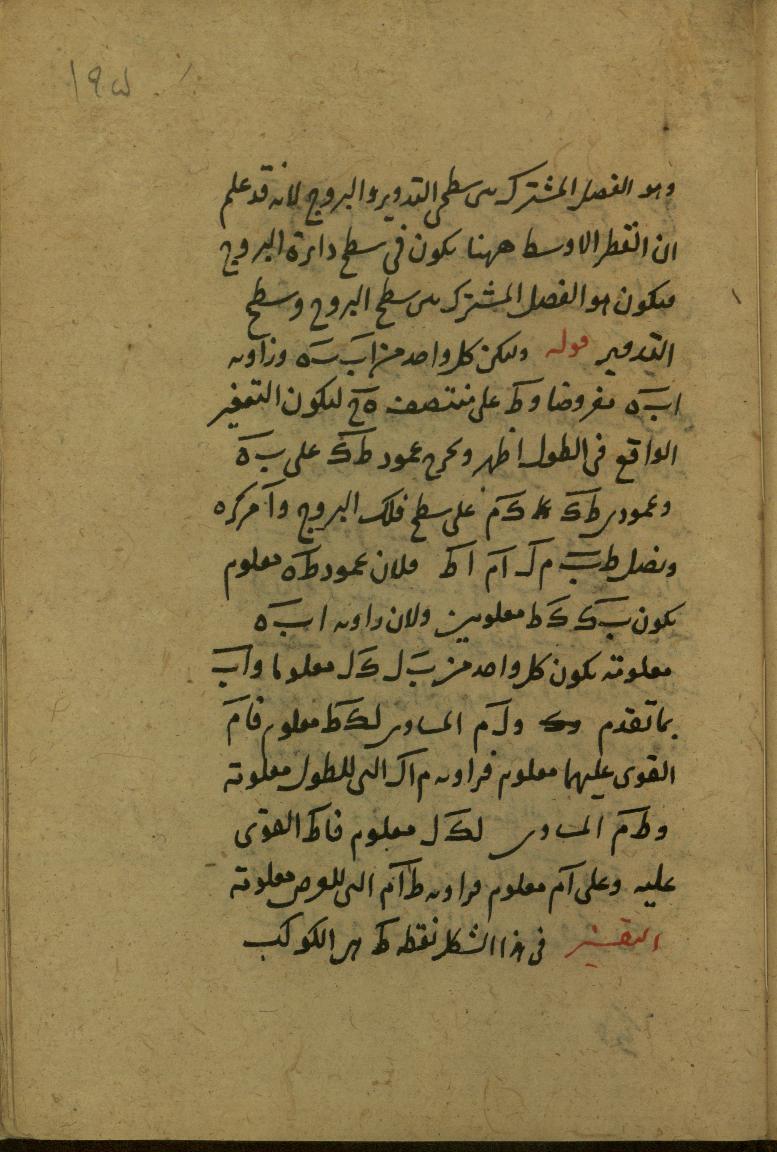 ١٩٥
وهو الفصل المشترك بىں سطحى التدوير والبروج لانه قد علم
ان القطر الاوسط ههنا يكون فى سطح دائرة البروج
فيكون هو الفصل المشترك بىں سطح البروج وسطح
التدوير قوله وليكن كل واحد من اب ب ه وزاوية
اب ه مفروضا وط على منتصف ه ح ليكون التغير
الواقع فى الطول اظهر ونخرج عمود ط ك على ب ه
وعمودى ط م ك ل على سطح فلك البروج وا مركزه
ونصل ط ب م ل ا م ا ط فلان عمود ط ه معلوم
يكون ب ك ك ط معلومين ولان زاوية ا ب ه
معلومة يكون كل واحد من ب ل ك ل معلوما واب
بما تقدم ول م المساوى لك ط معلوم فام
القوى عليهما معلوم فزاوية م ا ل التى للطول معلومة
وط م المساوى لك ل معلوم فاط القوى
عليه وعلى ام معلوم فزاوية ط ا م التى للعرض معلومة
التفسير فى هذا الشكل نقطة ط هى الكوكب